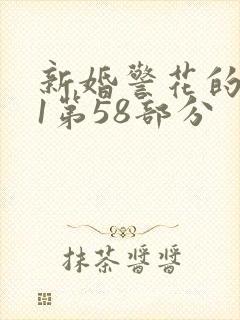 新婚警花的
1第58部分
抹茶酱酱